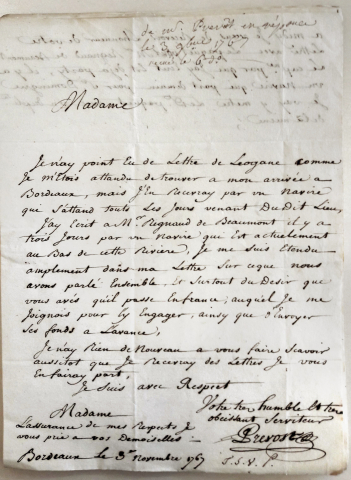 de Mr. Prevost en réponse
Madame
Je n'ay point Eu de Lettre de Leogane comme
Je m'etois attandu de trouver a mon arrivée a
Bordeaux, mais J'En Recevray par un Navire
que J'attand touts Les Jours venant Du Dit Lieu,
J'ay Ecrit a Mr. Rignaud de Beaumont il y a
trois Jours par un Navire que Est actuelement
au Bas de cette Riviere, Je me suis Etendu
amplement dans ma Lettre Sur ceque nous
avons parlé Ensemble, et Surtout du Desir que
vous avés qu'il passe En france, auquel Je me
Joignois pour Ly Engager, ainsy que d'envoyer
Ses fonds a L'avance,
Je n'ay Rien de Nouveau a vous faire Scavoir
aussitot que Je Recevray des Lettres Je vous
En fairay part,
Je Suis avec Respect
Madame
Votre tres humble Et tres
obeissant Serviteur
Prevost
L'assurance de mes Respects Je
vous prie a vos Demoiselles
Bordeaux le 3e Novembre 1767
T.S.V.P.